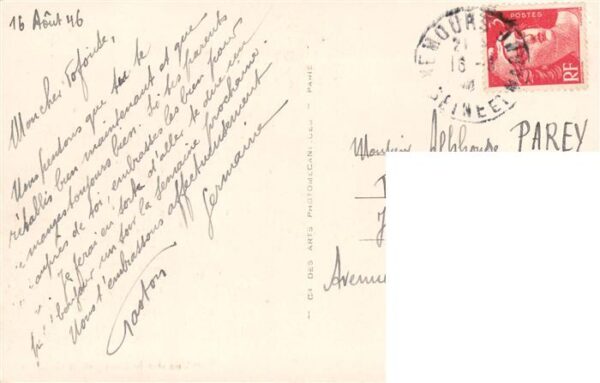 16 Août 46
Mon cher Fofonse,
Nous pensons que tu te
rétablis bien maintenant et que
"manges toujours bien. Si tes parents
auprès de toi, embrasses les bien pour
". Je ferai en sorte d'aller te dire un
" bonjour un soir la semaine prochaine
Nous t'embrassons affectueusement
Germaine
Gaston
— Cie DES ARTS PHOTOMECANIQUES — PARIS
NEMOURS
21
16 -
SEINE ET MARNE
POSTES
RF
Monsieur Alphonse PAREY
Avenue